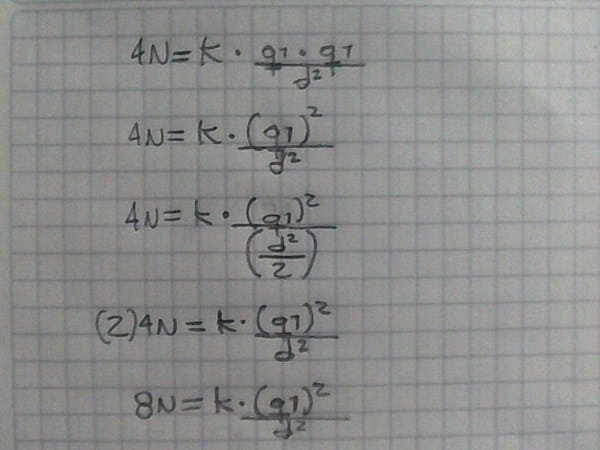 4N = K · q1 · q1 / d²
4N = K · (q1)² / d²
4N = K · (q1)² / (d²/2)
(2)4N = K · (q1)² / d²
8N = K · (q1)² / d²